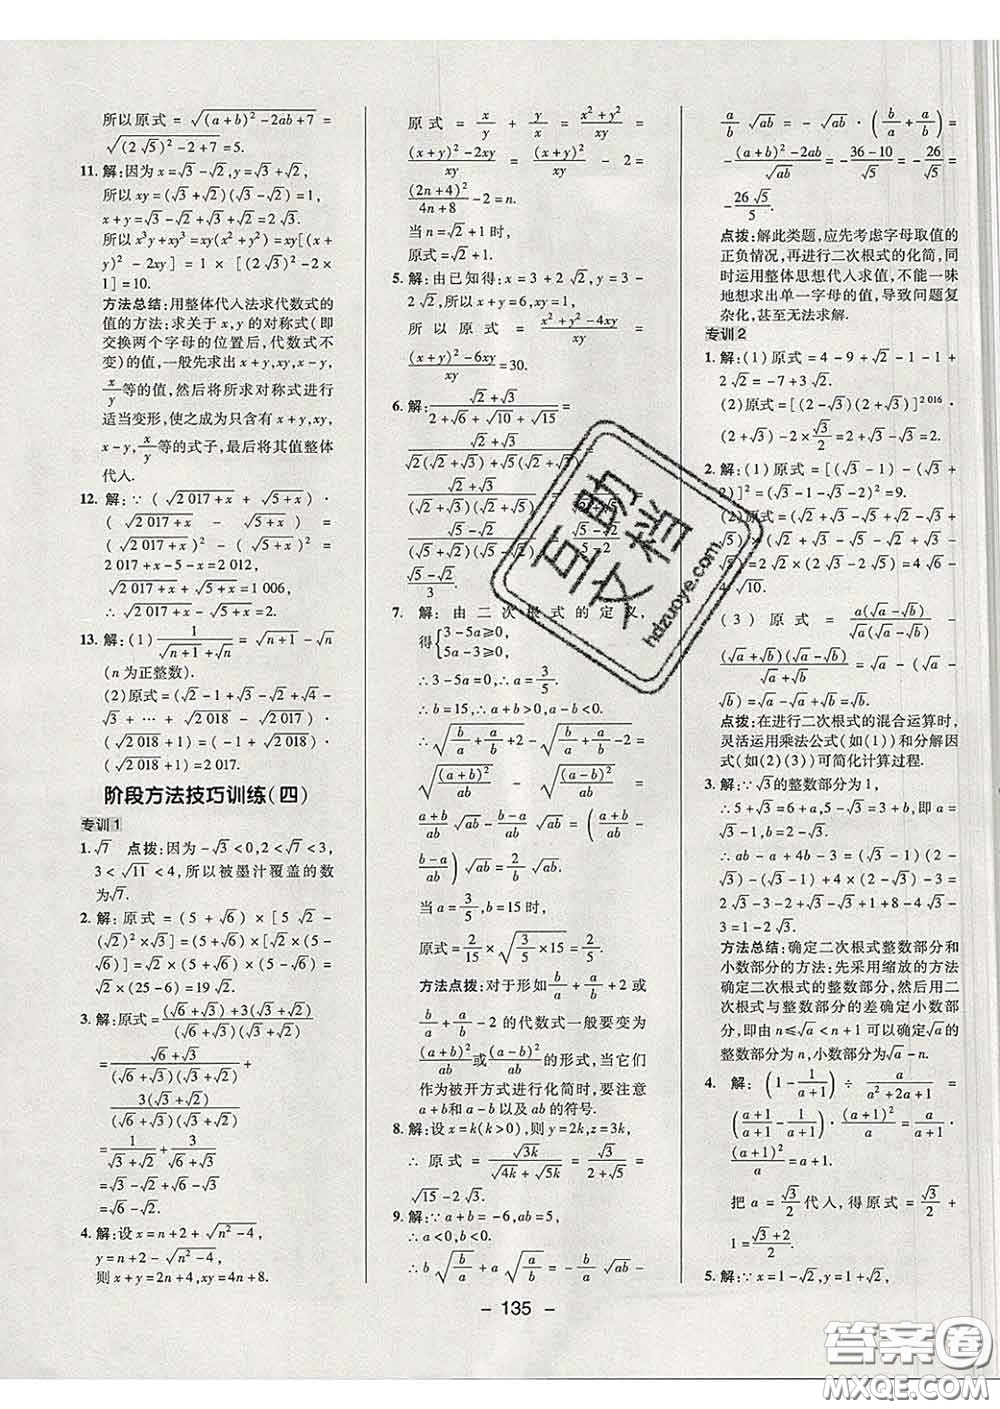 所以原式=√((a+b)²-2ab+7)=
√((2√5)²-2+7)=5.
11.解:因为x=√3-√2,y=√3+√2,
所以xy=(√3+√2)(√3-√2)=1,
x+y=√3-√2+√3+√2=2√3.
所以x³y+xy³=xy(x²+y²)=xy[(x+
y)²-2xy]=1×[(2√3)²-2×
1]=10.
方法总结:用整体代入法求代数式的
值的方法:求关于x,y的对称式(即
交换两个字母的位置后,代数式不
变)的值,一般先求出x+y,xy,x-y,
x/y等的值,然后将所求对称式进行
适当变形,使之成为只含有x+y,xy,
x-y,x/y等的式子,最后将其值整体
代入.
12.解:∵(√(2 017+x)+√(5+x))·
(√(2 017+x)-√(5+x))=
(√(2 017+x))²-(√(5+x))²=
2 017+x-5-x=2 012,
√(2 017+x)+√(5+x)=1 006,
∴√(2 017+x)-√(5+x)=2.
13.解:(1)1/(√(n+1)+√n)=√(n+1)-√n
(n为正整数).
(2)原式=(√2-1+√3-√2+√4-
√3+…+√(2 018)-√(2 017))·
(√(2 018)+1)=(-1+√(2 018))·
(√(2 018)+1)=2 017.
阶段方法技巧训练(四)
专训1
1.√7 点拨:因为-√3<0,2<√7<3,
3<√11<4,所以被墨汁覆盖的数
为√7.
2.解:原式=(5+√6)×[5√2-
(√2)²×√3]=(5+√6)×[√2×
(5-√2×√3)]=(5+√6)×(5-√6)
×√2=√2×(25-6)=19√2.
3.解:原式=((√6+√3)+3(√3+√2))/((√6+√3)(√3+√2))
=(√6+√3)/((√6+√3)(√3+√2))+
3(√3+√2)/((√6+√3)(√3+√2))
=1/(√3+√2)+3/(√6+√3)
=√3-√2+√6-√3
=√6-√2.
4.解:设x=n+2+√(n²-4),
y=n+2-√(n²-4),
则x+y=2n+4,xy=4n+8.
原式=x/y+y/x=(x²+y²)/xy=
((x+y)²-2xy)/xy=(x+y)²/xy-2=
(2n+4)²/(4n+8)-2=n.
当n=√2+1时,
原式=√2+1.
5.解:由已知得:x=3+2√2,y=3-
2√2,所以x+y=6,xy=1,
所以原式=(x²+y²-4xy)/xy=
((x+y)²-6xy)/xy=30.
6.解:(√2+√3)/(2+√6+√10+√15)=
(√2+√3)/(√2(√2+√3)+√5(√2+√3))
(√2+√3)/((√2+√3)(√2+√5)
(√5-√2)/((√5+√2)(√5-√2)
5-2
(√5-√2)/3.
7.解:由二次根式的定义,
得{3-5a≥0,
5a-3≥0,
∴3-5a=0,∴a=3/5.
∴b=15,∴a+b>0,a-b<0.
∴√(b/a+a/b+2)-√(b/a+a/b-2)=
√((a+b)²/ab)-√((a-b)²/ab)=
(a+b)/ab √ab-(b-a)/ab √ab=((a+b)/ab-
(b-a)/ab)√ab=2/b √ab.
当a=3/5,b=15时,
原式=2/15×√(3/5×15)=2/5.
方法点拨:对于形如b/a+a/b+2或
b/a+a/b-2的代数式一般要变为
(a+b)²/ab或(a-b)²/ab的形式,当它们
作为被开方式进行化简时,要注意
a+b和a-b以及ab的符号.
8.解:设x=k(k>0),则y=2k,z=3k,
∴原式=√(3k)/(√(4k)+√(5k))=√3/(2+√5)=
√15-2√3.
9.解:∵a+b=-6,ab=5,
∴a<0,b<0.
∴b√(b/a)+a√(a/b)=-b/a √ab-
a/b √ab=-√ab·(b/a+a/b)=
-((a+b)²-2ab)/√ab=-(36-10)/√5=-26/√5=
-26√5/5.
点拨:解此类题,应先考虑字母取值的
正负情况,再进行二次根式的化简,同
时运用整体思想代入求值,不能一味
地想求出单一字母的值,导致问题复
杂化,甚至无法求解.
专训2
1.解:(1)原式=4-9+√2-1-1+
2√2=-7+3√2.
(2)原式=[(2-√3)(2+√3)]²⁰¹⁶·
(2+√3)-2×√3/2=2+√3-√3=2.
2.解:(1)原式=[(√3-1)-(√3-
4)]²=(√3-1-√3+4)²=9.
(2)原式=(√5+√3-√2)(√5-
4√10.
(3)原式=a(√a-√b)/(√a(√a-√b))-
(√a+√b)(√a-√b)/(√a+√b)=√a-(√a-
√b)=√a-√a+√b=√b.
点拨:在进行二次根式的混合运算时,
灵活运用乘法公式(如(1))和分解因
式(如(2)(3))可简化计算过程.
3.解:∵√3的整数部分为1,
∴5+√3=6+a,5-√3=3+b,即a=
√3-1,b=2-√3.
∴ab-a+4b-3=(√3-1)(2-
√3)-(√3-1)+4×(2-√3)-3=
2√3-3-2+√3-√3+1+8-4√3-
3=1-2√3.
方法总结:确定二次根式整数部分和
小数部分的方法:先采用缩放的方法
确定二次根式的整数部分,然后用二
次根式与整数部分的差确定小数部
分,即由n≤√a<n+1可以确定√a的
整数部分为n,小数部分为√a-n.
4.解:(1-1/(a+1))÷a/(a²+2a+1)=
((a+1)/(a+1)-1/(a+1))·(a+1)²/a=a/(a+1)·
(a+1)²/a=a+1.
把a=√3/2代入,得原式=√3/2+
1=(√3+2)/2.
5.解:∵x=1-√2,y=1+√2,
- 135 -
互助文档
hdzuoye.com
答案卷
MXQE.COM